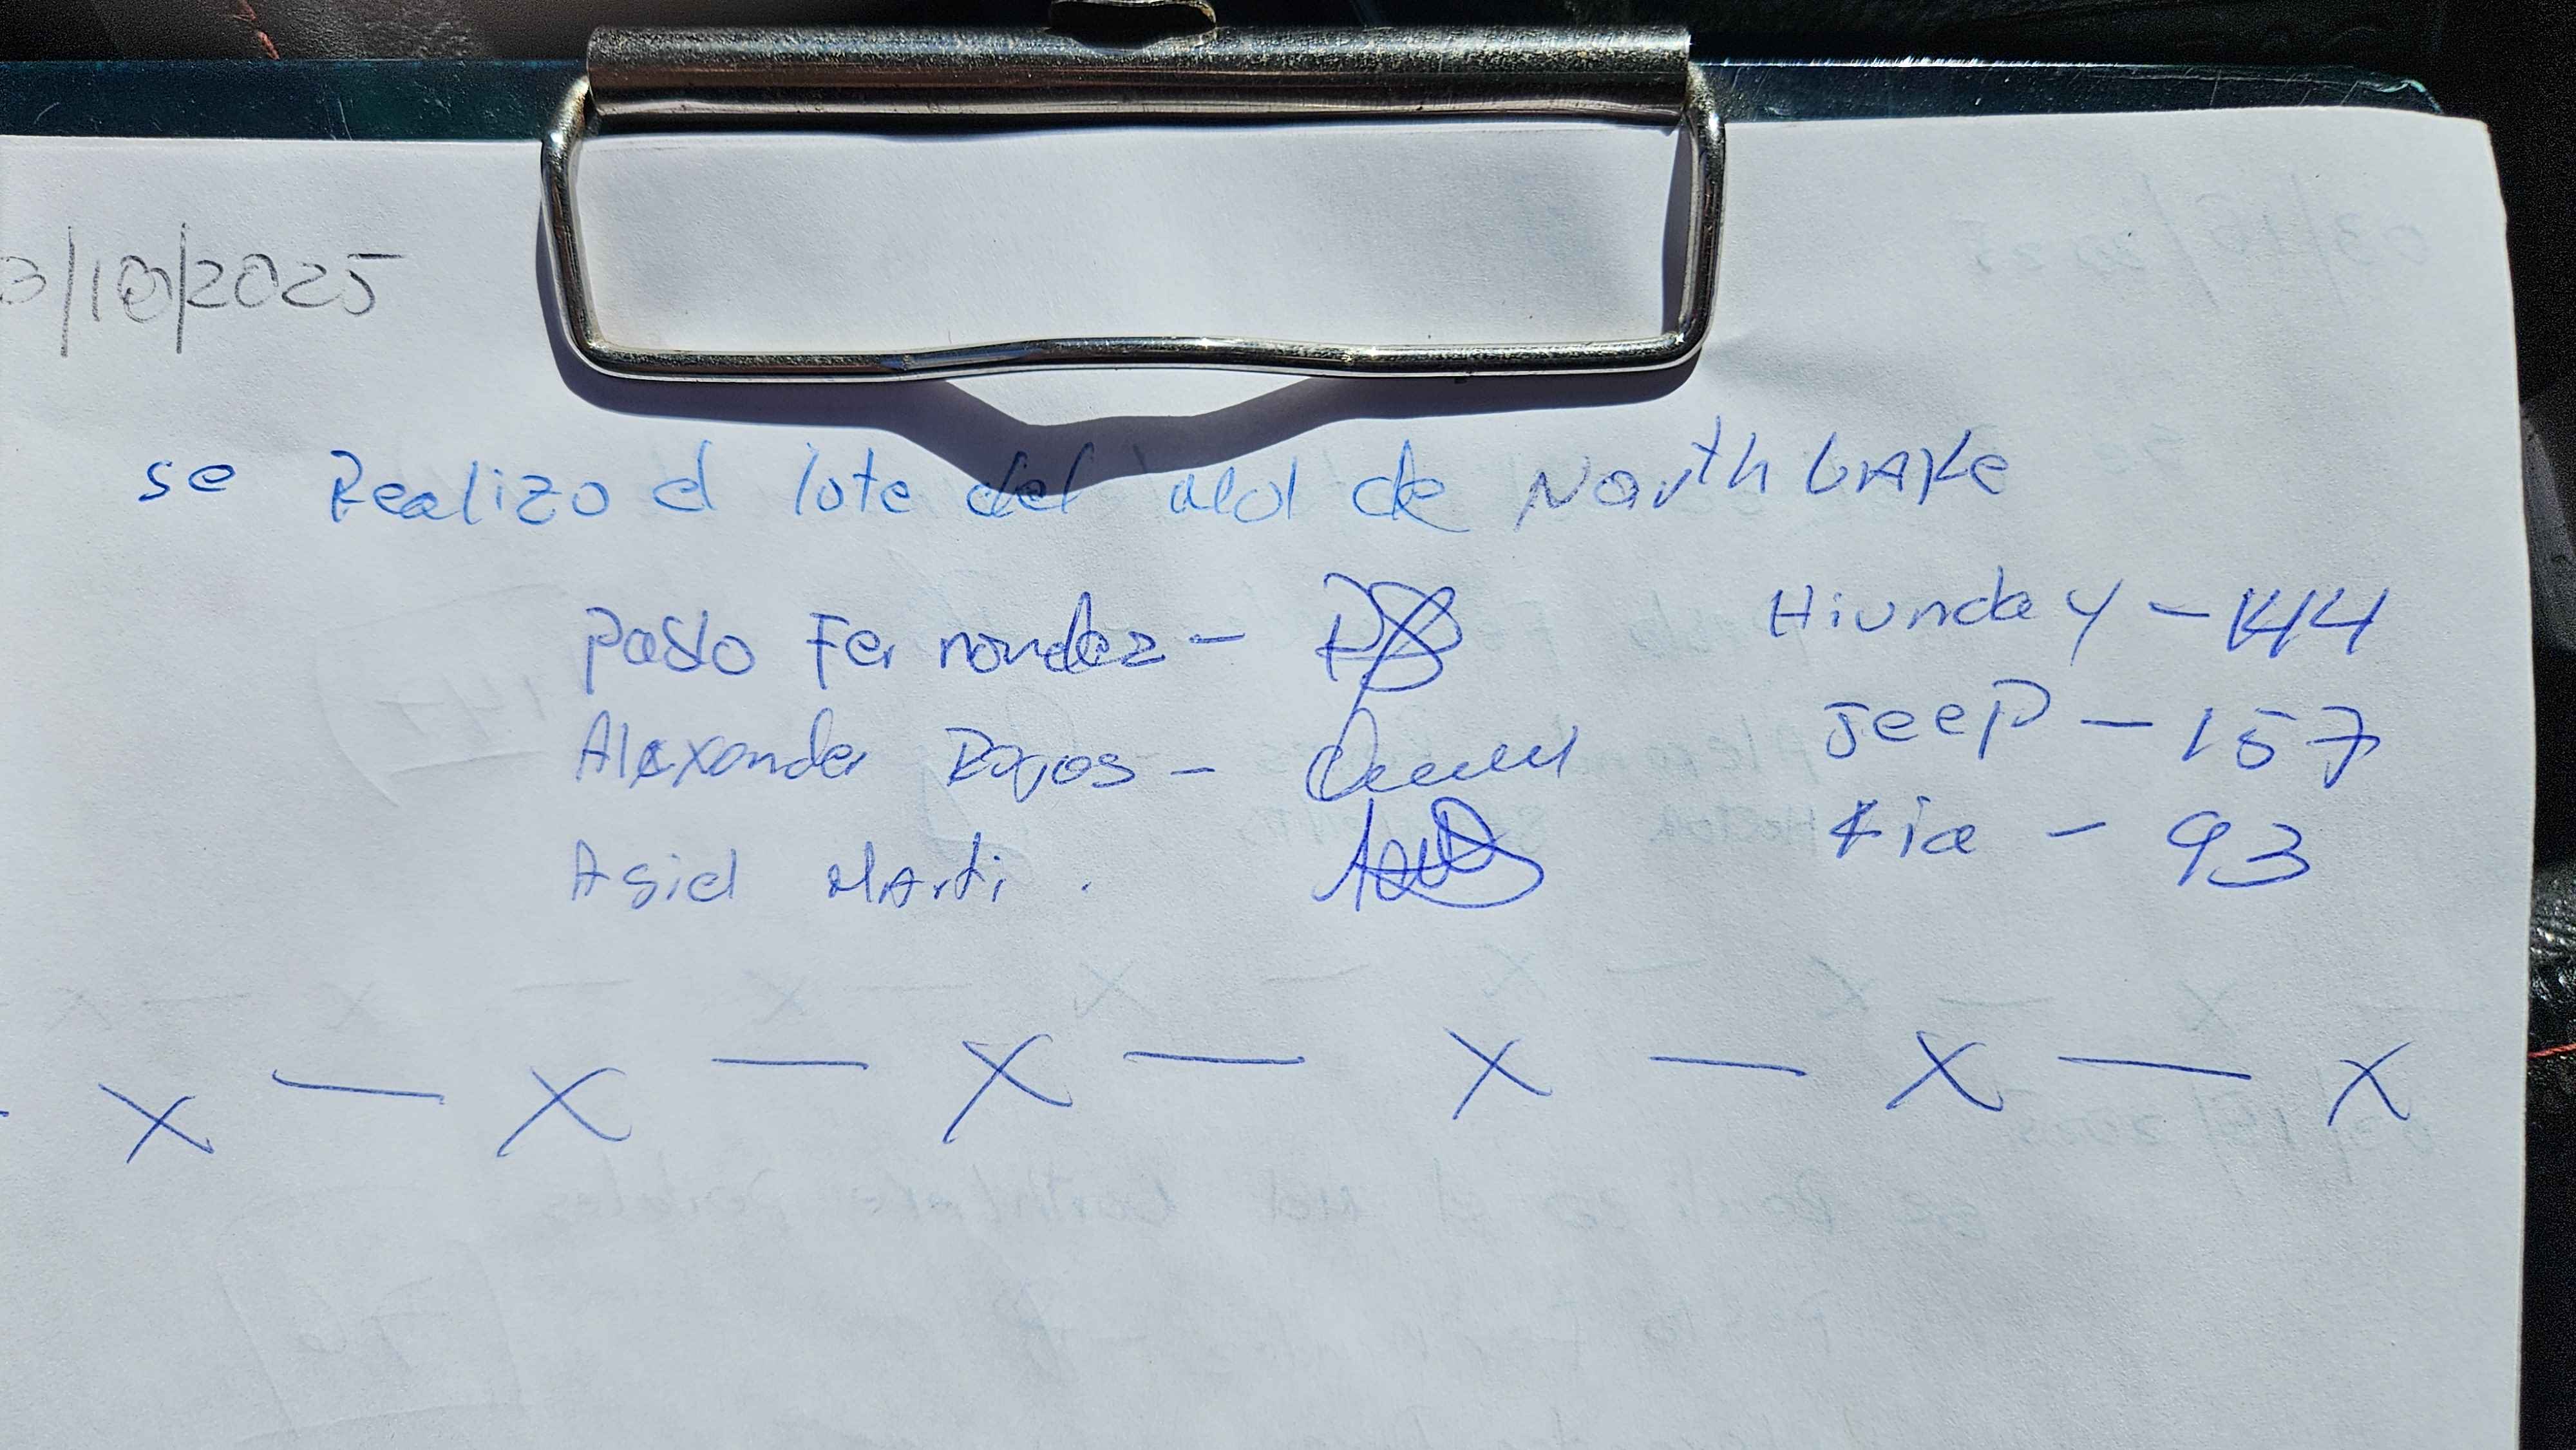 3/10/2025
se Realizo el lote del mol de North Lake
Pablo Fernandez -
Hiunday - 144
Alexander Bagos -
Jeep - 157
Asiel Marti .
Kia - 93
- X - X - X - X - X - X